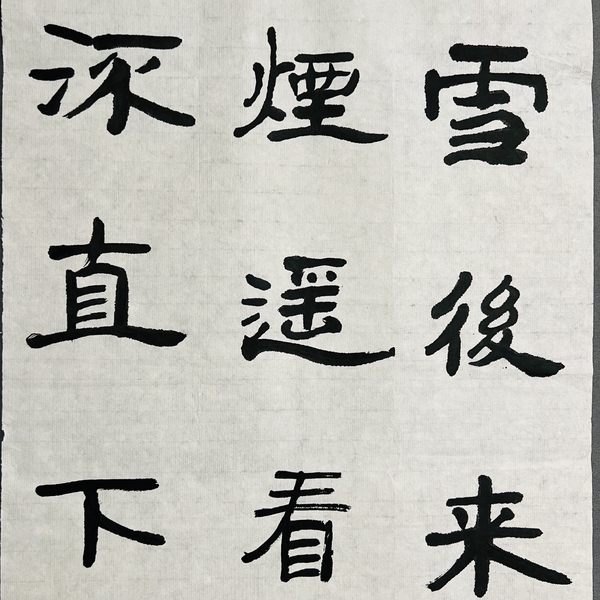 雪後来
煙遥看
直下